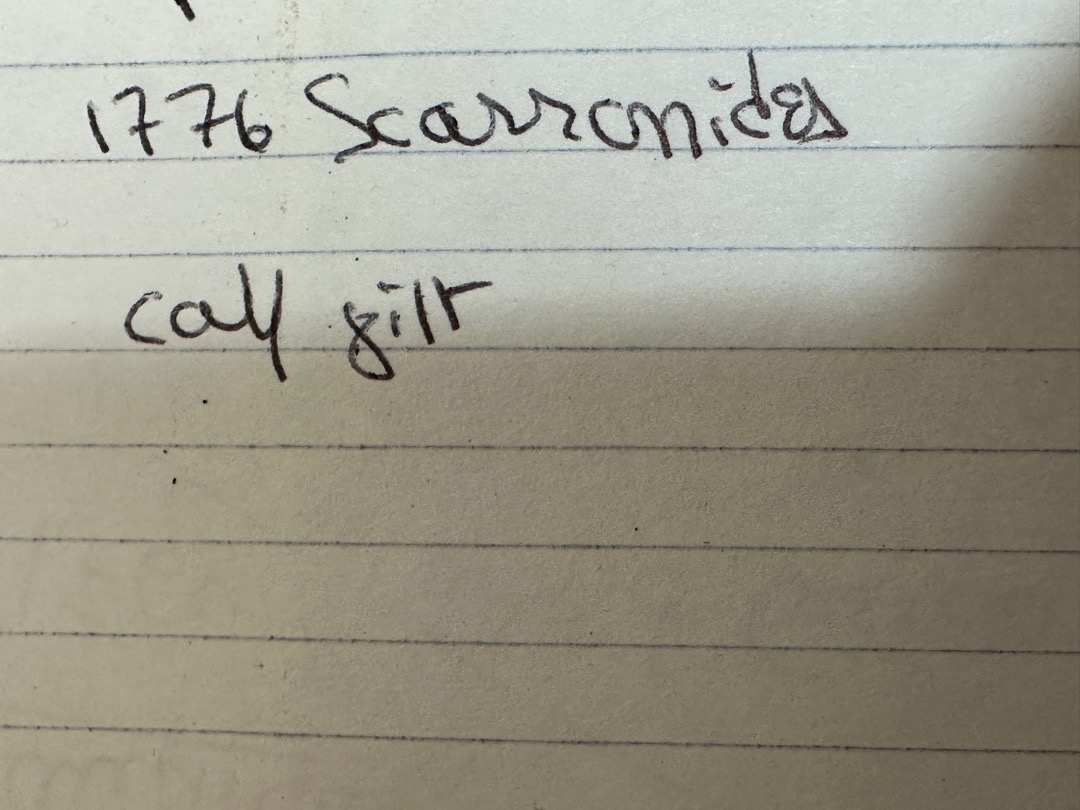 1776 Scarronides
calf gilt